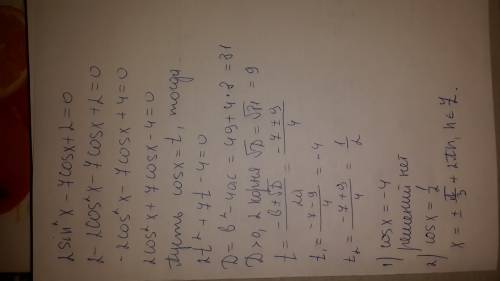 2sin²x - 7cosx + 2 = 0
2 - 2cos²x - 7cosx + 2 = 0
- 2cos²x - 7cosx + 4 = 0
2cos²x + 7cosx - 4 = 0
Пусть cosx = t, тогда
2t² + 7t - 4 = 0
D = b² - 4ac = 49 + 4·8 = 81
D > 0, 2 корня √D = √81 = 9
t = (-b ± √D)/2a = (-7 ± 9)/4
t₁ = (-7 - 9)/4 = -4
t₂ = (-7 + 9)/4 = 1/2
1) cosx = -4
решений нет
2) cosx = 1/2
x = ± π/3 + 2πn, n ∈ Z.